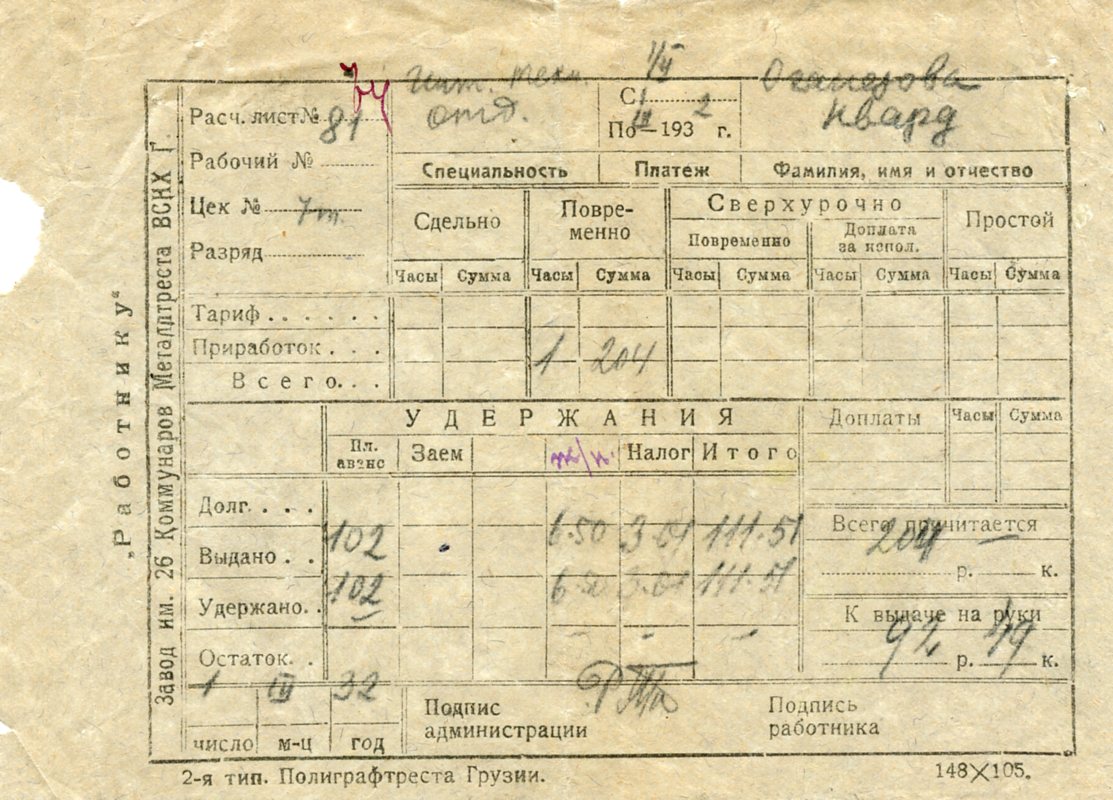 74
Расч. лист № 81
отд.
С 1/II
По 1 III —1932 г.
Оганезова
Квард
Рабочий №
Специальность Платеж Фамилия, имя и отчество
Цек №
Разряд
Сдельно Повре-менно Сверхурочно Простой
Повременно Доплата за испол.
Часы Сумма Часы Сумма Часы Сумма Часы Сумма Часы Сумма
Тариф . . . . . .
Приработок . . . 1 204
Всего. . .
УДЕРЖАНИЯ Доплаты Часы Сумма
Пл. аванс Заем Налог Итого
Долг. . . .
Выдано . . 102 6.50 3.01 111.51
Удержано. . 102 6.50 3.01 111.51
Остаток. . - -
Всего причитается
204 —
р. к.
К выдаче на руки
92 р. 49 к.
1 III 32
число м-ц год
Подпис администрации
Подпись работника
2-я тип. Полиграфтреста Грузии.
148X105.
„Работнику“
Завод им. 26 Коммунаров Металлтреста ВСНХ Г.